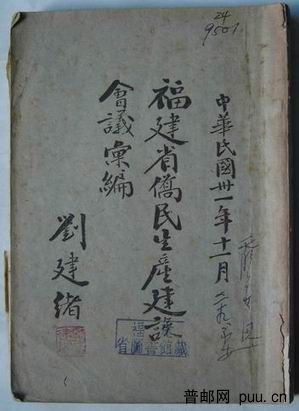 24
9501
中華民國卅一年十一月
福建省僑民生產建設
會議彙編
劉建緒
普邮网 puu.cn